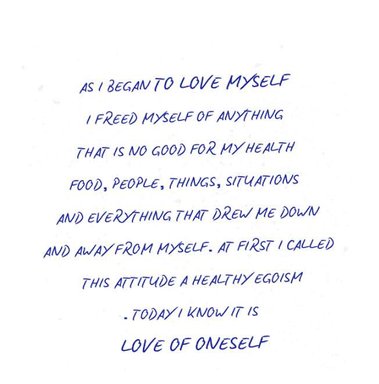 AS I BEGAN TO LOVE MYSELF
I FREED MYSELF OF ANYTHING
THAT IS NO GOOD FOR MY HEALTH
FOOD, PEOPLE, THINGS, SITUATIONS
AND EVERYTHING THAT DREW ME DOWN
AND AWAY FROM MYSELF. AT FIRST I CALLED
THIS ATTITUDE A HEALTHY EGOISM
. TODAY I KNOW IT IS
LOVE OF ONESELF